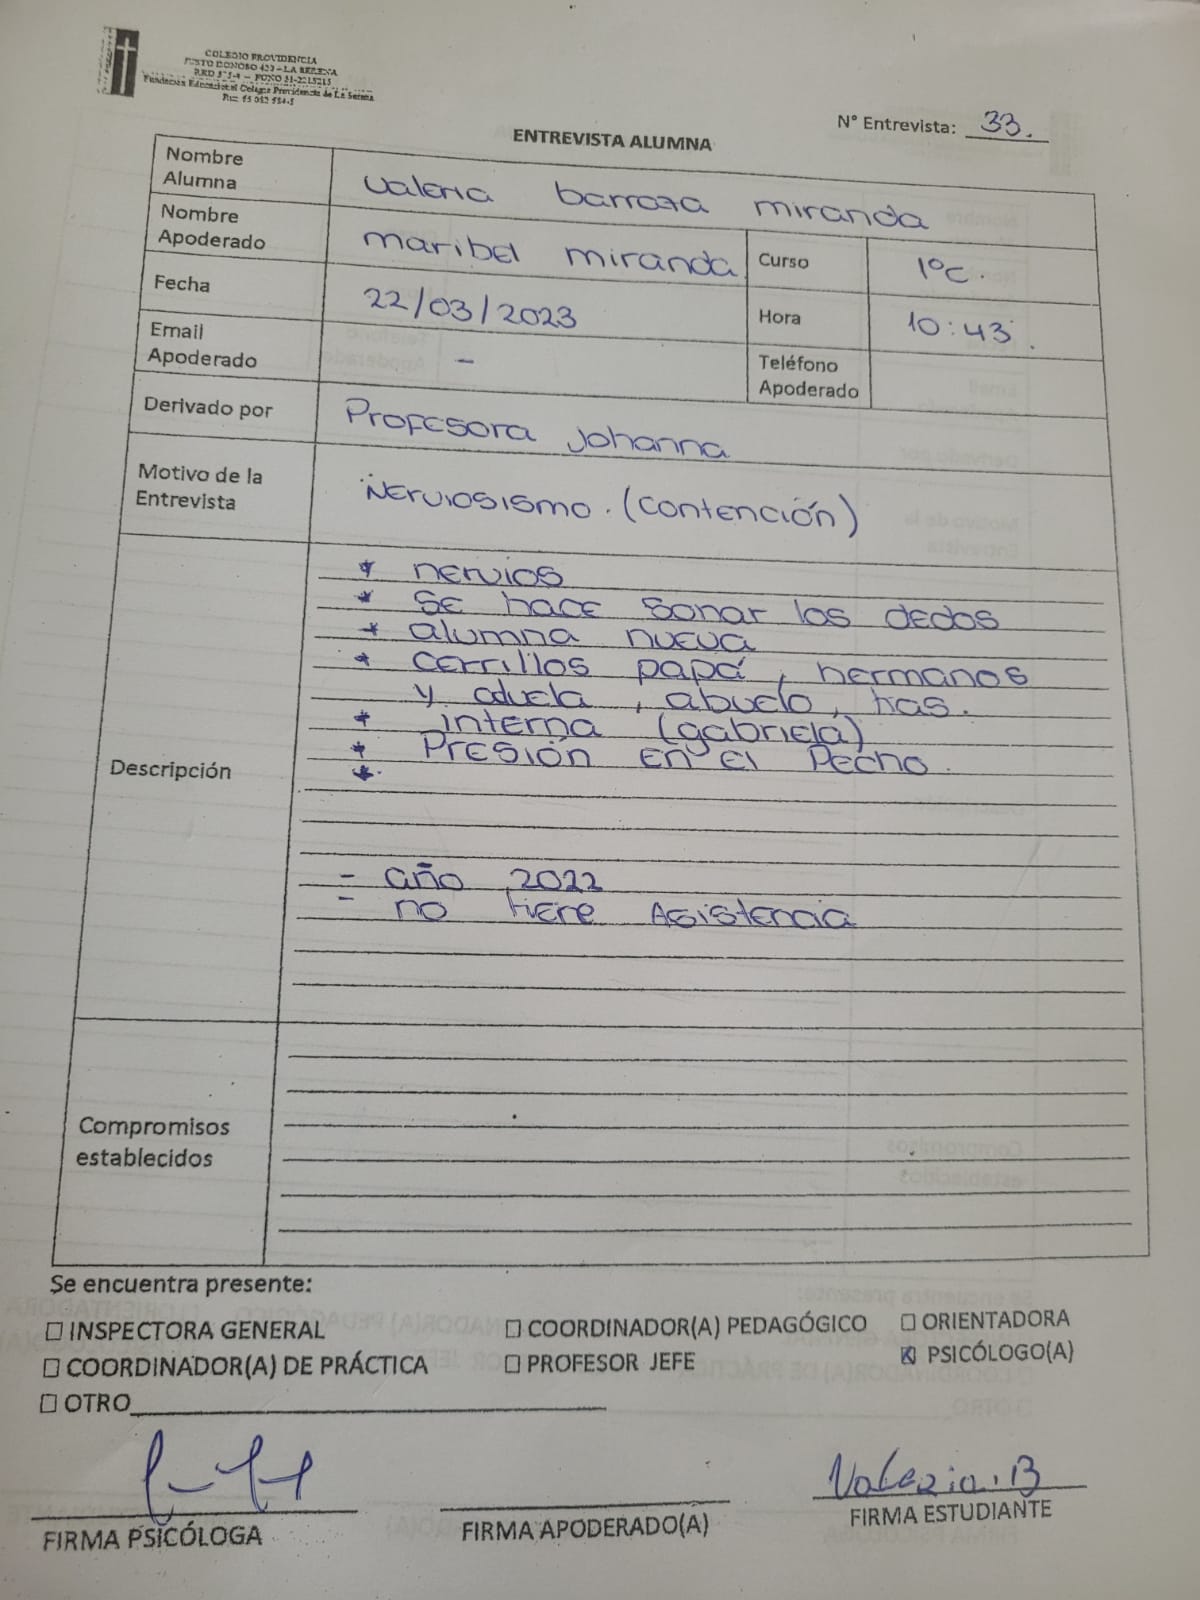 COLEGIO PROVIDENCIA
JUSTO DONOSO 420 – LA SERENA
RBD 575-4 – FONO 51-2215215
Fundación Educacional Colegio Providencia de La Serena
N° Entrevista: 33.
ENTREVISTA ALUMNA
Nombre Alumna valeria barraza miranda
Nombre Apoderado maribel miranda Curso 1°C.
Fecha 22/03/2023 Hora 10:43.
Email Apoderado - Teléfono Apoderado
Derivado por Profesora Johanna
Motivo de la Entrevista Nerviosismo. (contención)
Descripción
* nervios
* se hace sonar los dedos
* alumna nueva
* cerrillos papá, hermanos
y abuela, abuelo, tias.
* interna (gabriela)
* Presión en el Pecho.
*
- año 2022
- no tiene Asistencia
Compromisos establecidos
Se encuentra presente:
☐ INSPECTORA GENERAL ☐ COORDINADOR(A) PEDAGÓGICO ☐ ORIENTADORA
☐ COORDINADOR(A) DE PRÁCTICA ☐ PROFESOR JEFE ☒ PSICÓLOGO(A)
☐ OTRO
Valeria.B
FIRMA PSICÓLOGA FIRMA APODERADO(A) FIRMA ESTUDIANTE